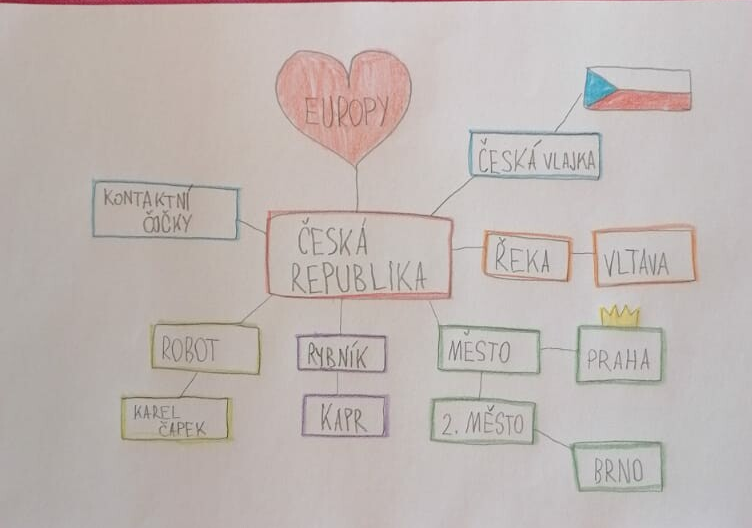 EUROPY
ČESKÁ VLAJKA
KONTAKTNÍ
ČOČKY
ČESKÁ
REPUBLIKA
ŘEKA
VLTAVA
ROBOT
RYBNÍK
MĚSTO
PRAHA
KAREL
ČAPEK
KAPR
2. MĚSTO
BRNO